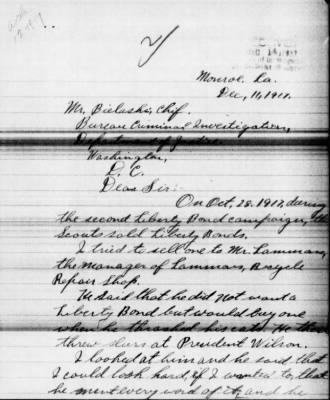 2/
Monroe, La.
Dec, 11, 1917.
Mr. Bielaski, Chif.
Bureau Cuminal Investigation,
Department of Justice
Washington,
D. C.
Dear Sir:
On Oct. 28. 1917 during
the second Liberty Bond campaign, the
Scouts sold Liberty Bonds.
I tried to sell one to Mr. Lamman,
the manager of Lammans, Bycycle
Repair Shop.
He said that he did not want a
Liberty Bond but would buy one
when he thrashed his oats. He then
threw slurs at President Wilson.
I looked at him and he said that
I could look hard, if I wanted to, that
he ment every word of it, and he